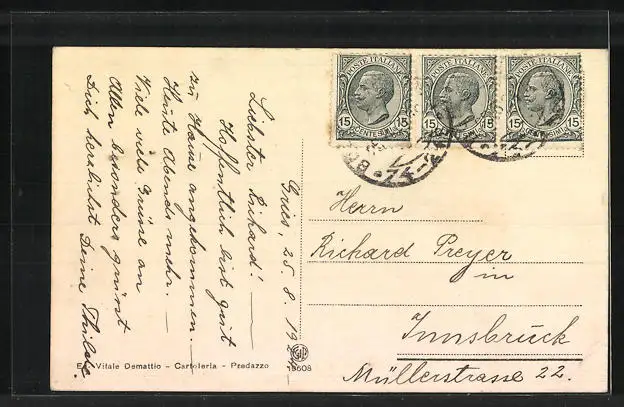 POSTE ITALIANE POSTE ITALIANE POSTE ITALIANE
15 CENTESIMI 15 15 CENTESIMI 15 15 CENTESIMI 15
24
Gries, 25. 8. 1924.
Liebster Richard! —
Hoffentlich bist gut
zu Hause angekommen. —
Heute Abends mehr. —
Viele viele Grüsse an
Allen besonders grüsst
Dich herzlichst Deine
Herrn
Richard Preyer
in
Innsbruck
Müllerstrasse 22.
Ed. Vitale Demattio - Cartoleria - Predazzo
19608